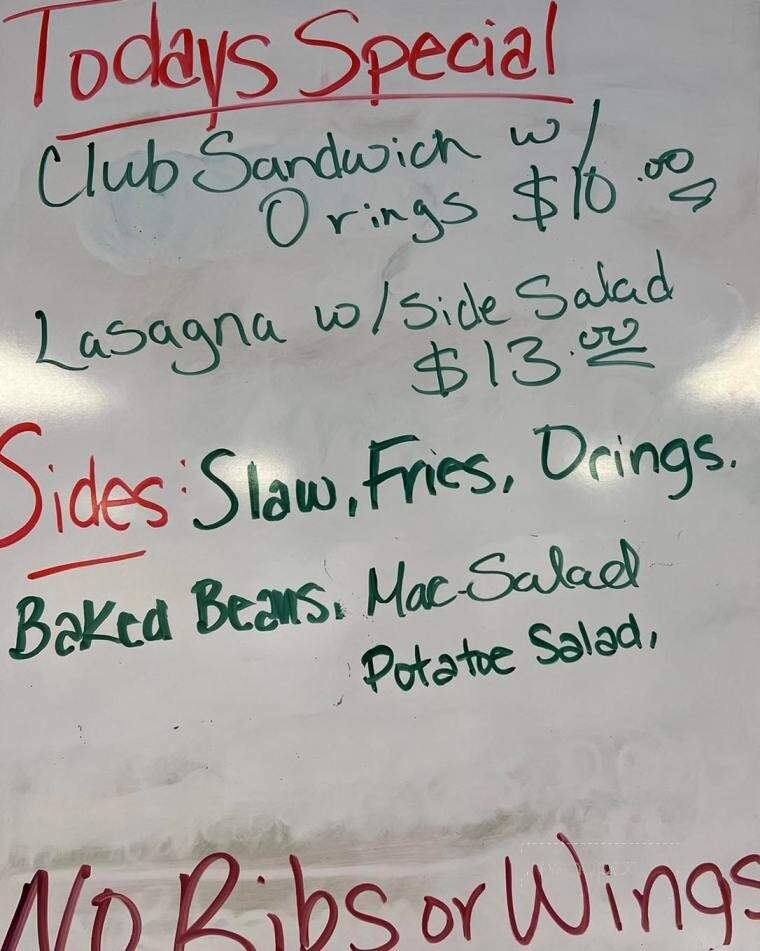 Todays Special
Club Sandwich w/
O rings $10.00
Lasagna w/side Salad
$13.00
Sides: Slaw, Fries, Orings.
Baked Beans. Mac Salad
Potatoe Salad,
No Ribs or Wings